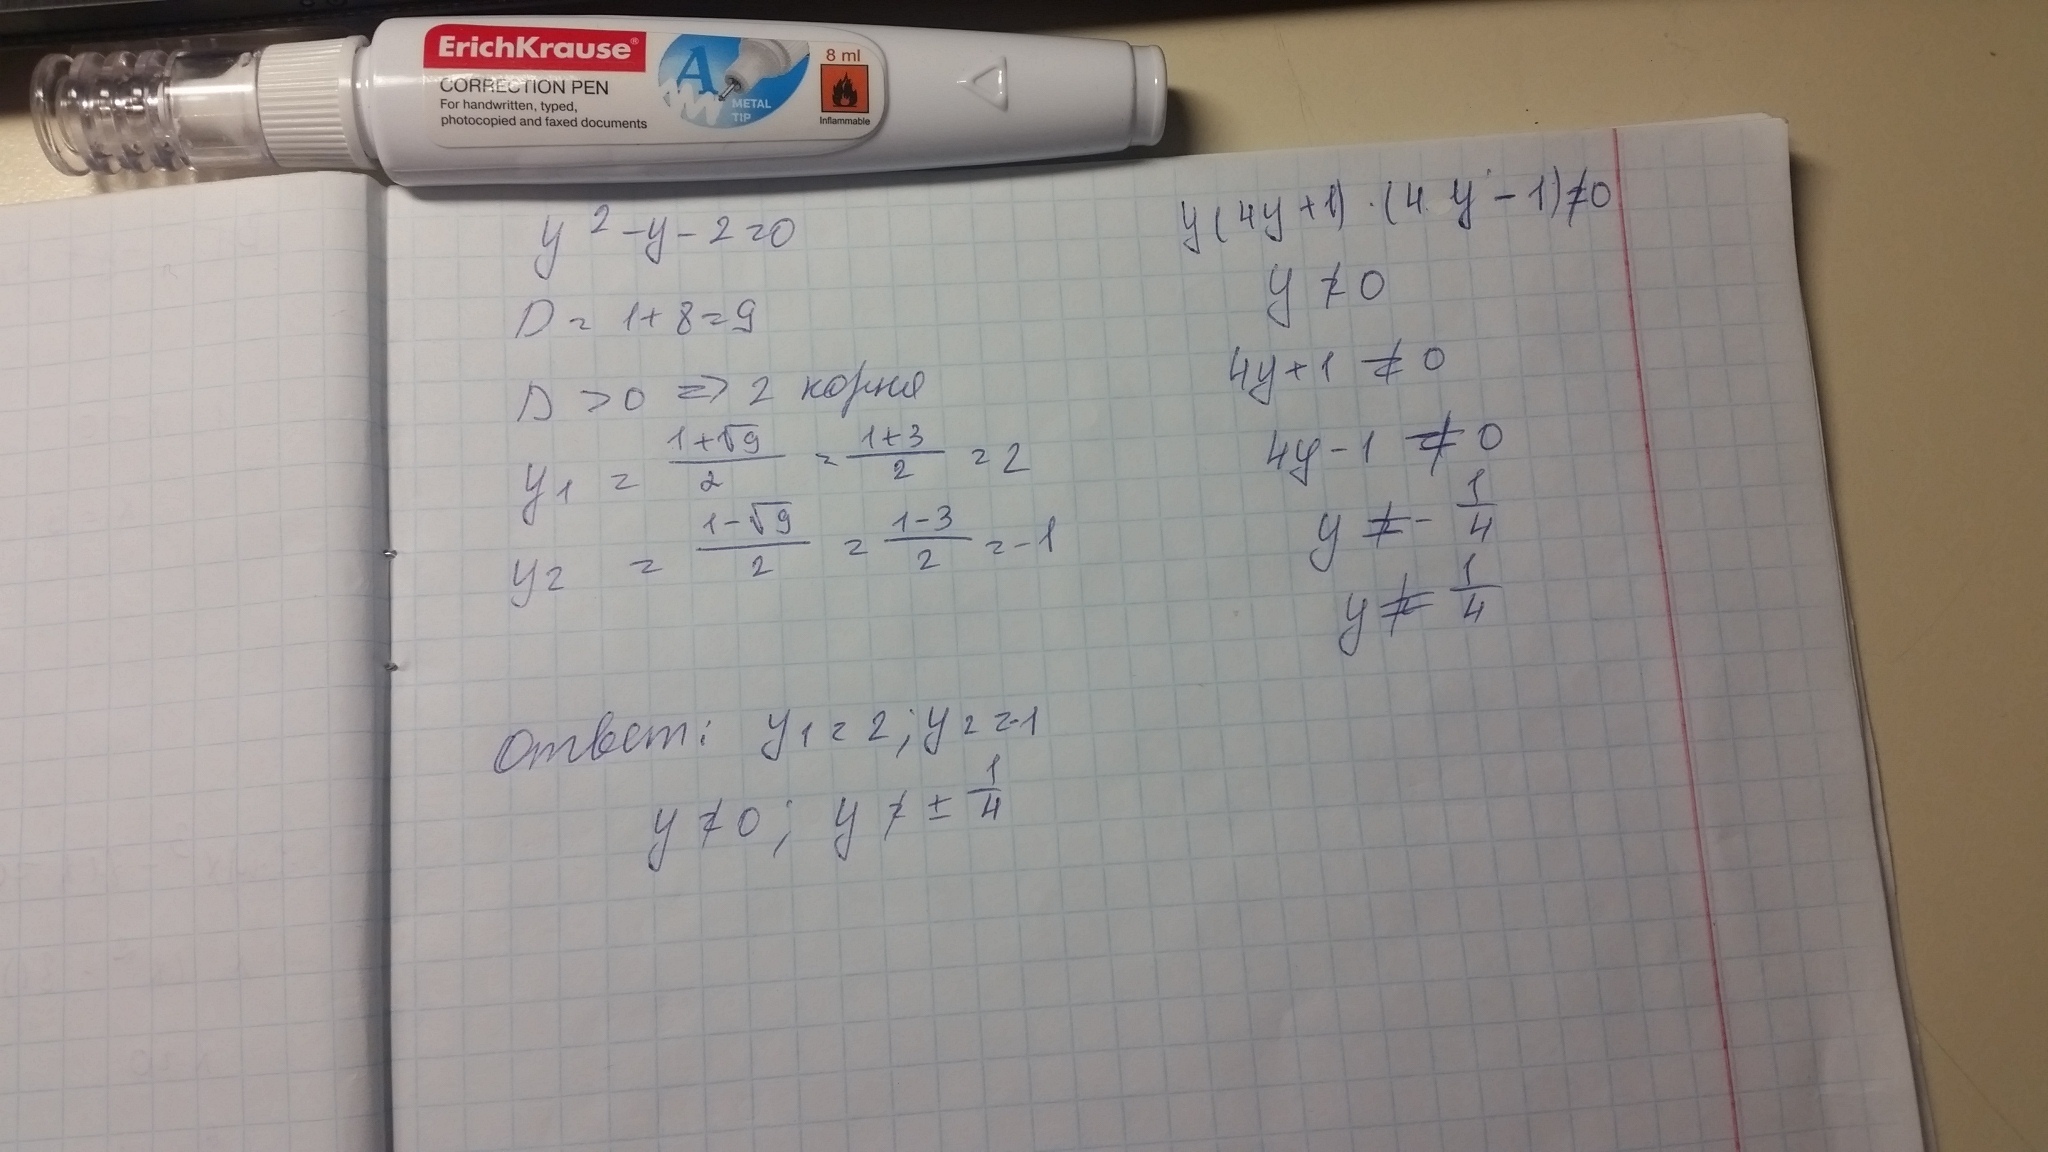 ErichKrause®
CORRECTION PEN
For handwritten, typed,
photocopied and faxed documents
A
METAL
TIP
8 ml
Inflammable
y² - y - 2 = 0
D = 1 + 8 = 9
D > 0 => 2 корня
y₁ = (1+√9)/2 = (1+3)/2 = 2
y₂ = (1-√9)/2 = (1-3)/2 = -1
y(4y+1)·(4y-1)≠0
y ≠ 0
4y+1 ≠ 0
4y-1 ≠ 0
y ≠ -1/4
y ≠ 1/4
Ответ: y₁ = 2; y₂ = -1
y ≠ 0; y ≠ ± 1/4